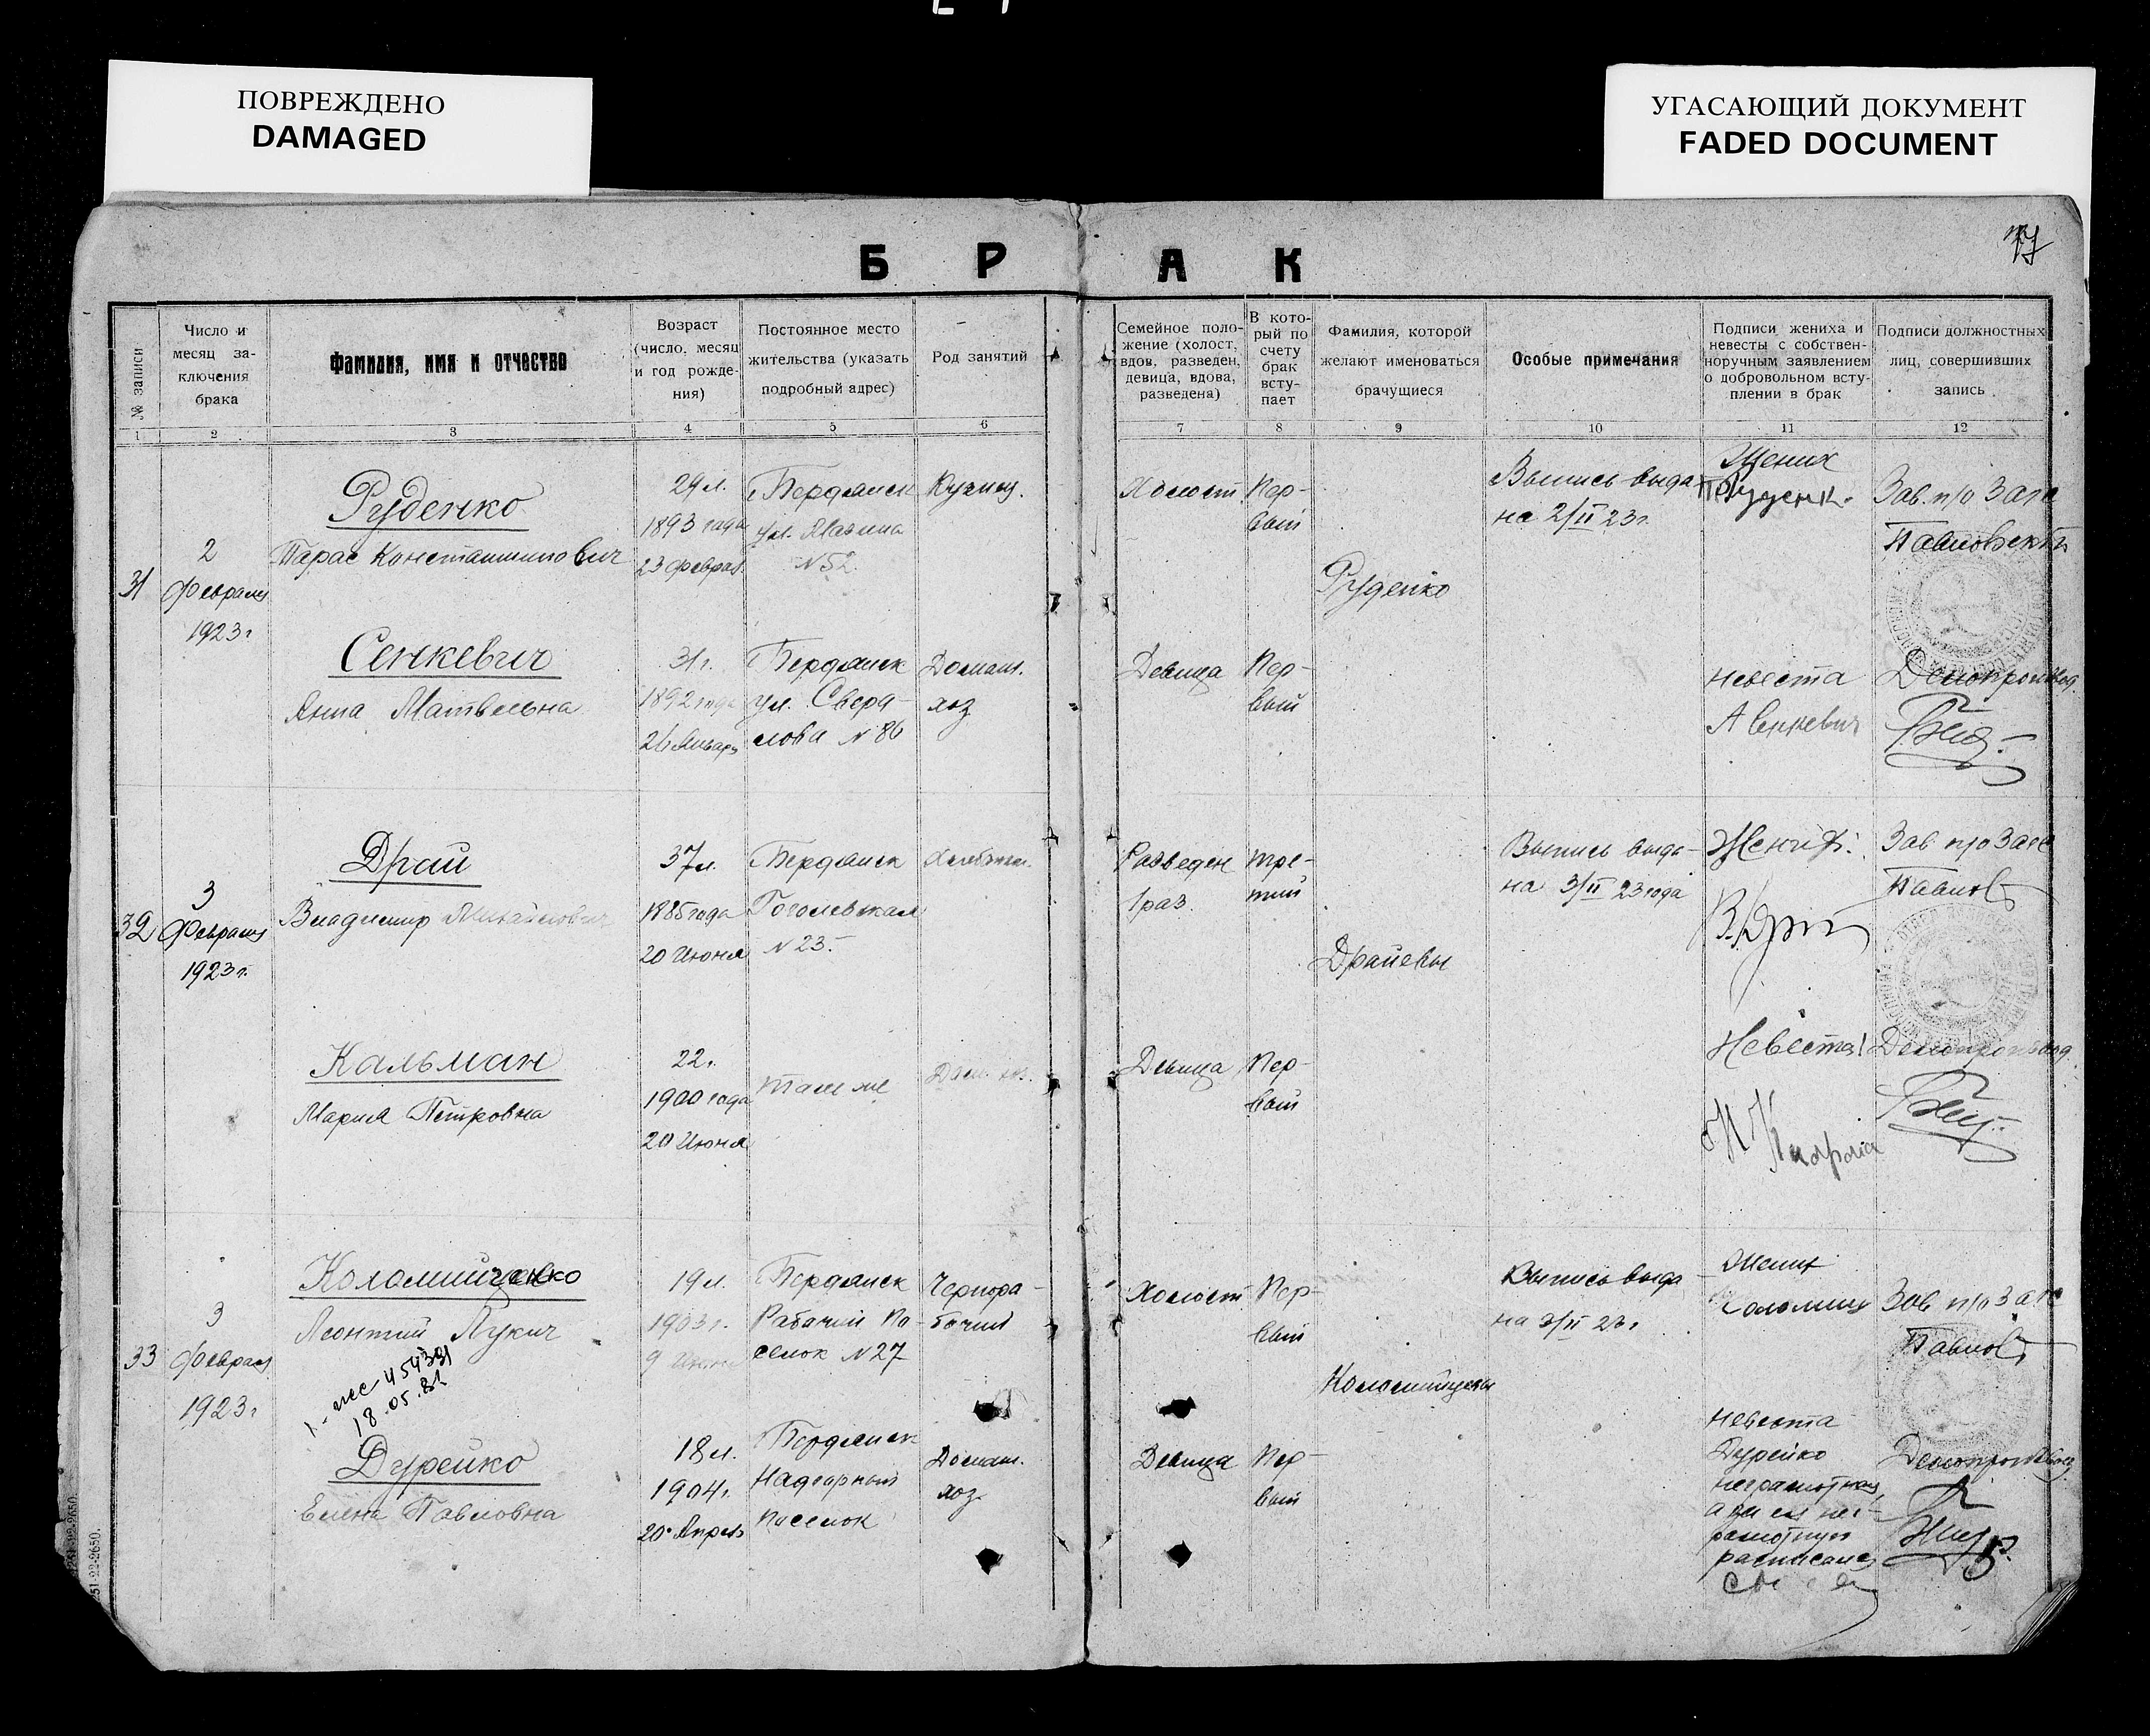 ПОВРЕЖДЕНО
DAMAGED
УГАСАЮЩИЙ ДОКУМЕНТ
FADED DOCUMENT
77
БРАК
№ записи
Число и
месяц за-
ключения
брака
Фамилия, имя и отчество
Возраст
(число, месяц
и год рожде-
ния)
Постоянное место
жительства (указать
подробный адрес)
Род занятий
Семейное поло-
жение (холост,
вдов, разведен,
девица, вдова,
разведена)
В кото-
рый по
счету
брак
всту-
пает
Фамилия, которой
желают именоваться
брачущиеся
Особые примечания
Подписи жениха и
невесты с собствен-
норучным заявлением
о добровольном всту-
плении в брак
Подписи должностных
лиц, совершивших
запись
1 2 3 4 5 6 7 8 9 10 11 12
31
2
Февраля
1923 г
Руденко
Тарас Константинович
29 л.
1893 года
23 Феврал.
Бердянск
ул. Мазина
N 52.
Кузнец.
Холост
Пер-
вый
Руденко
Выпись выда-
на 2/II 23 г.
Жених
Зав. п/о Загс
Павловский
Сенкевич
Анна Матвеевна
31 г.
1892 года
26 Январь
Бердянск
ул. Сверд-
лова N 86
Домаш.
хоз
Девица
Пер-
вый
невеста
А Сенкевич
Делопроизвод.
32
3
Февраля
1923 г.
Драй
Владимир Михайлович
37 л.
1885 года
20 Июня
Бердянск
Гоголевская
N 23.
Разведен
1 раз.
тре-
тий
Драйевы
Выпись выда-
на 3/II 23 года
Жених:
Зав п/о Загс
Павлов
Кальман
Мария Петровна
22 г.
1900 года
20 Июня
там же
Дом. хоз.
Девица
Пер-
вый
Невеста
Делопроизвод.
33
3
Февраля
1923 г
Леонтий Лукич
19 л.
1903 г.
9 Июня
Бердянск
Рабочий По-
селок N 27
Чернора-
бочий
Холост
Пер-
вый
Коломийцевы
Выпись выда-
на 3/II 23 г
Жених
Коломиц
Зав п/о Загс
Павлов
18.05.81
Дурейко
Елена Павловна
18 л.
1904 г.
20 Апрель
Бердянск
Нагорный
поселок
Домаш.
хоз.
Девица
Пер-
вый
невеста
Дурейко
неграмотная,
а за ея нег-
рамотную
расписалс
Делопроизвод
51-22-2650.